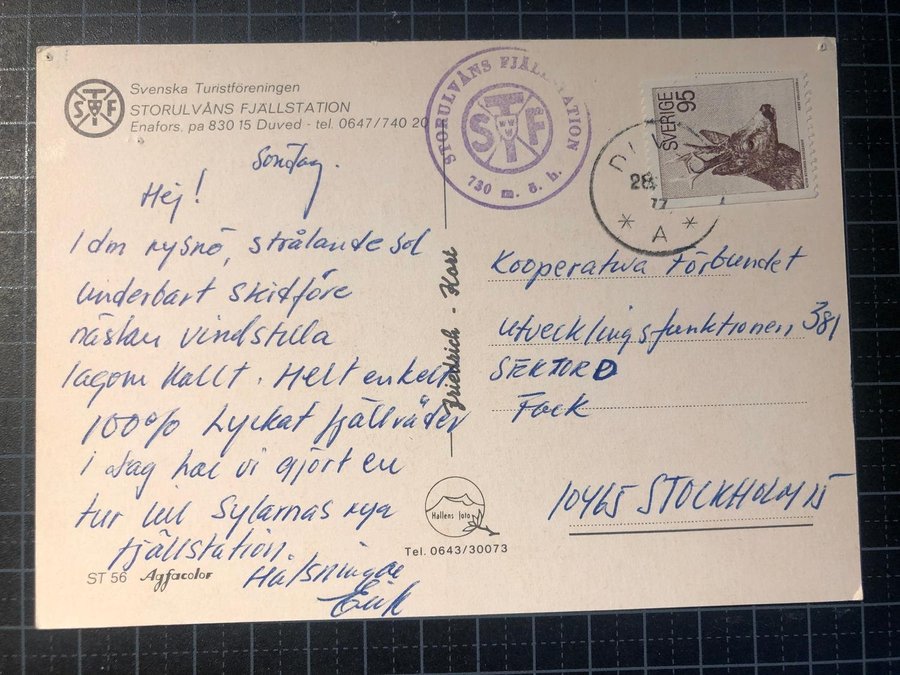 Svenska Turistföreningen
STORULVÅNS FJÄLLSTATION
Enafors. pa 830 15 Duved - tel. 0647/740 20
STF
STORULVÅNS FJÄLLSTATION
STF
730 m. ö. h.
SVERIGE 95
28
77
* A *
Söndag.
Hej!
1 dm nysnö, strålande sol
Underbart skidföre
nästan vindstilla
lagom kallt. Helt enkelt
100% Lyckat fjällväder
i dag har vi gjort en
tur till Sylarnas nya
fjällstation.
Hälsningar
Erik
ST 56 Agfacolor
Friedrich - Karl
Hallens foto
Tel. 0643/30073
Kooperativa Förbundet
Utvecklingsfunktionen 381
SEKTOR D
Fack
10465 STOCKHOLM 15